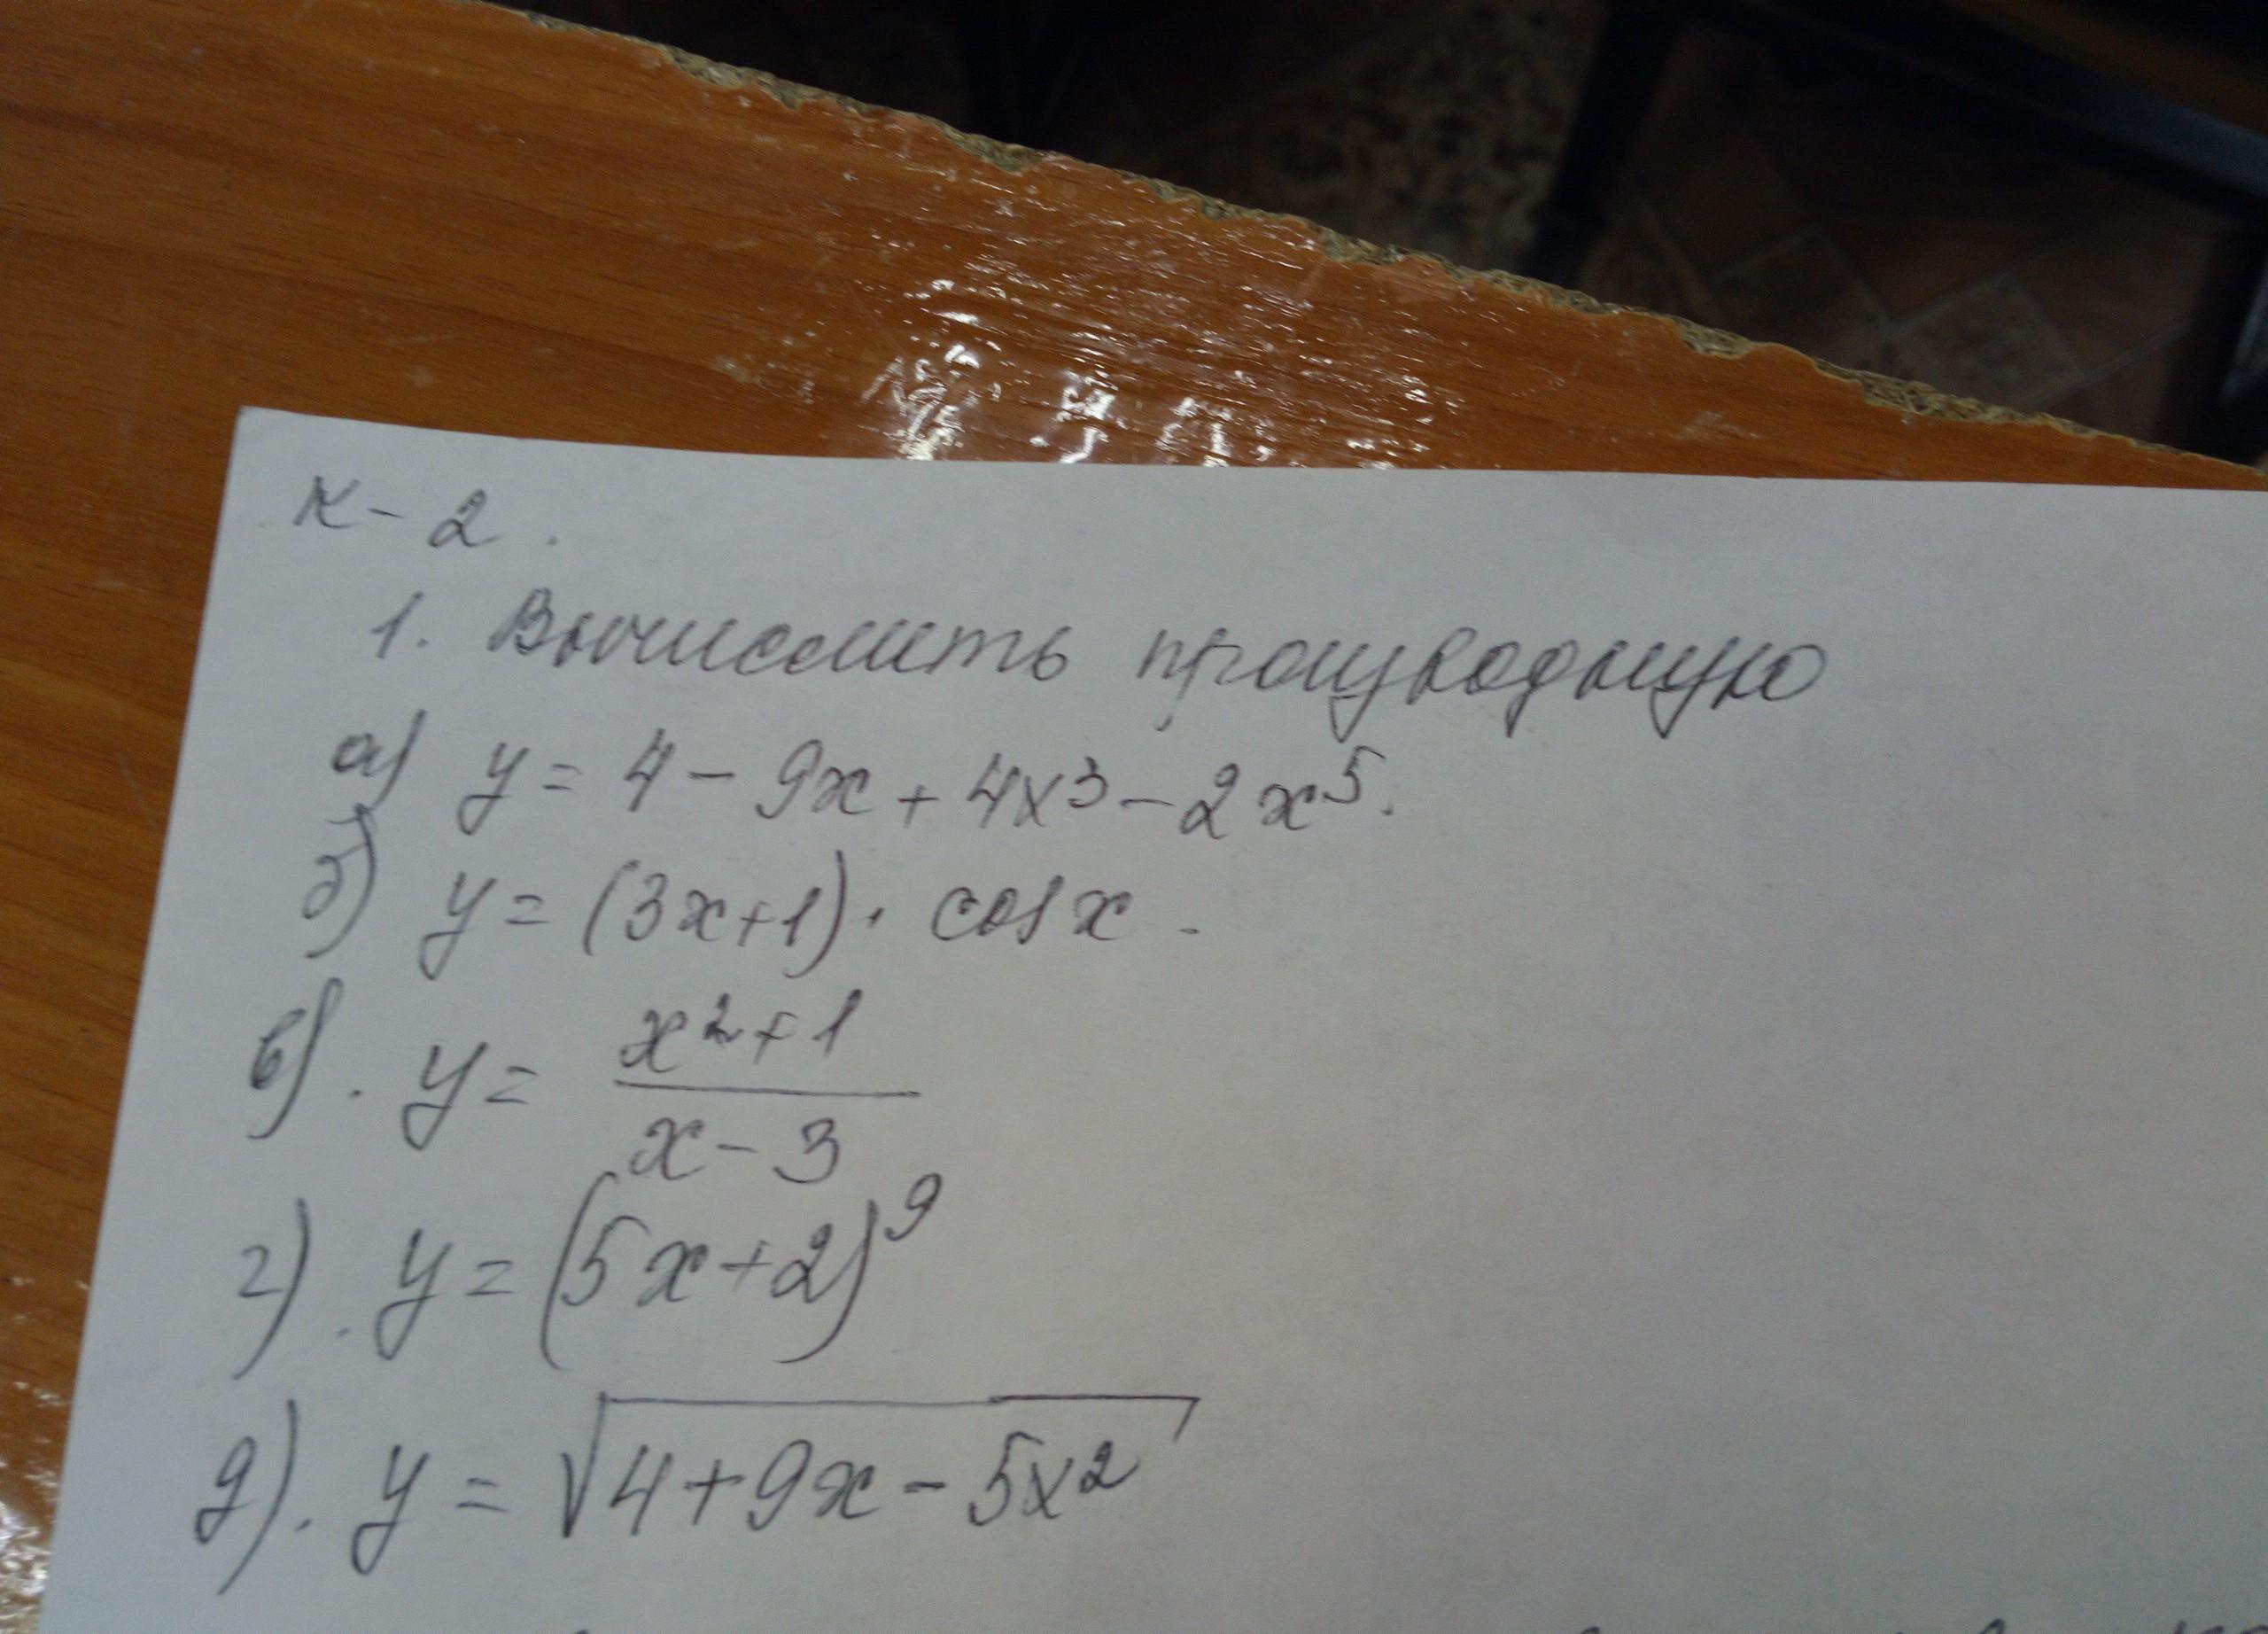 К-2.
1. Вычислить производную
а) y = 4 - 9x + 4x³ - 2x⁵.
б) y = (3x+1) · cos x.
в). y = (x²+1)/(x-3)
г). y = (5x+2)⁹
д). y = √(4+9x-5x²)